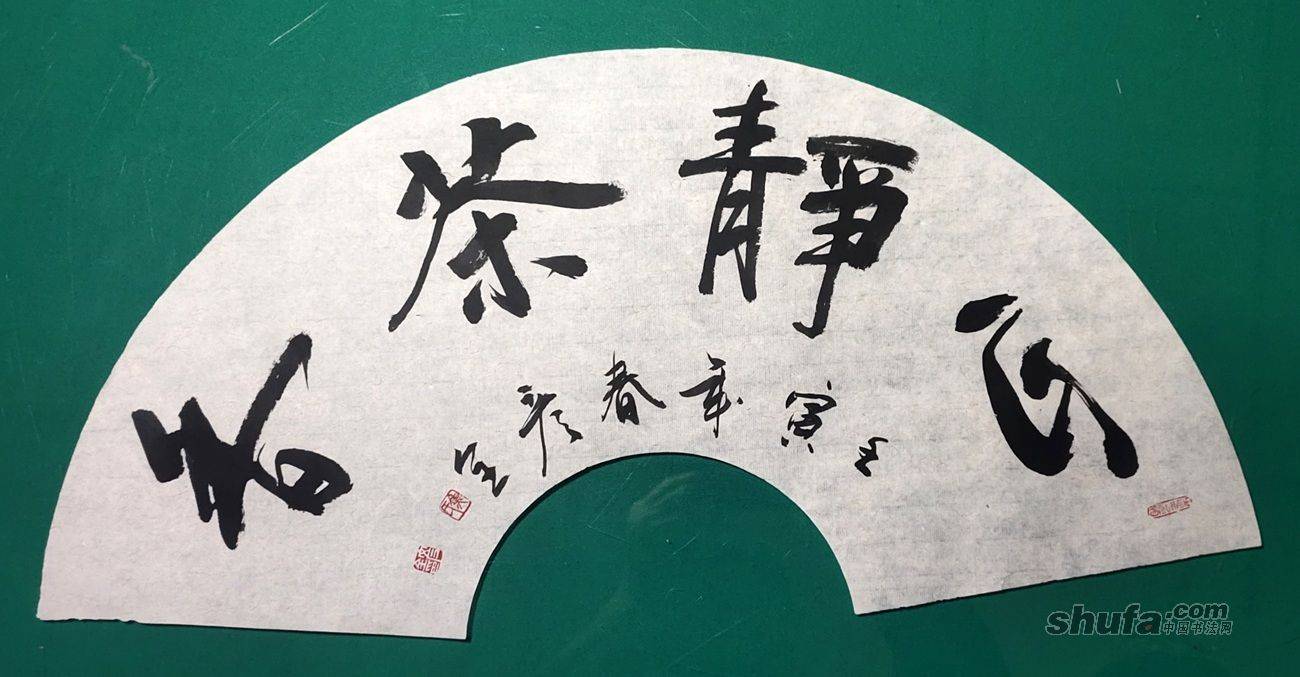 心靜茶香
壬寅年春
shufa.com
中国书法网